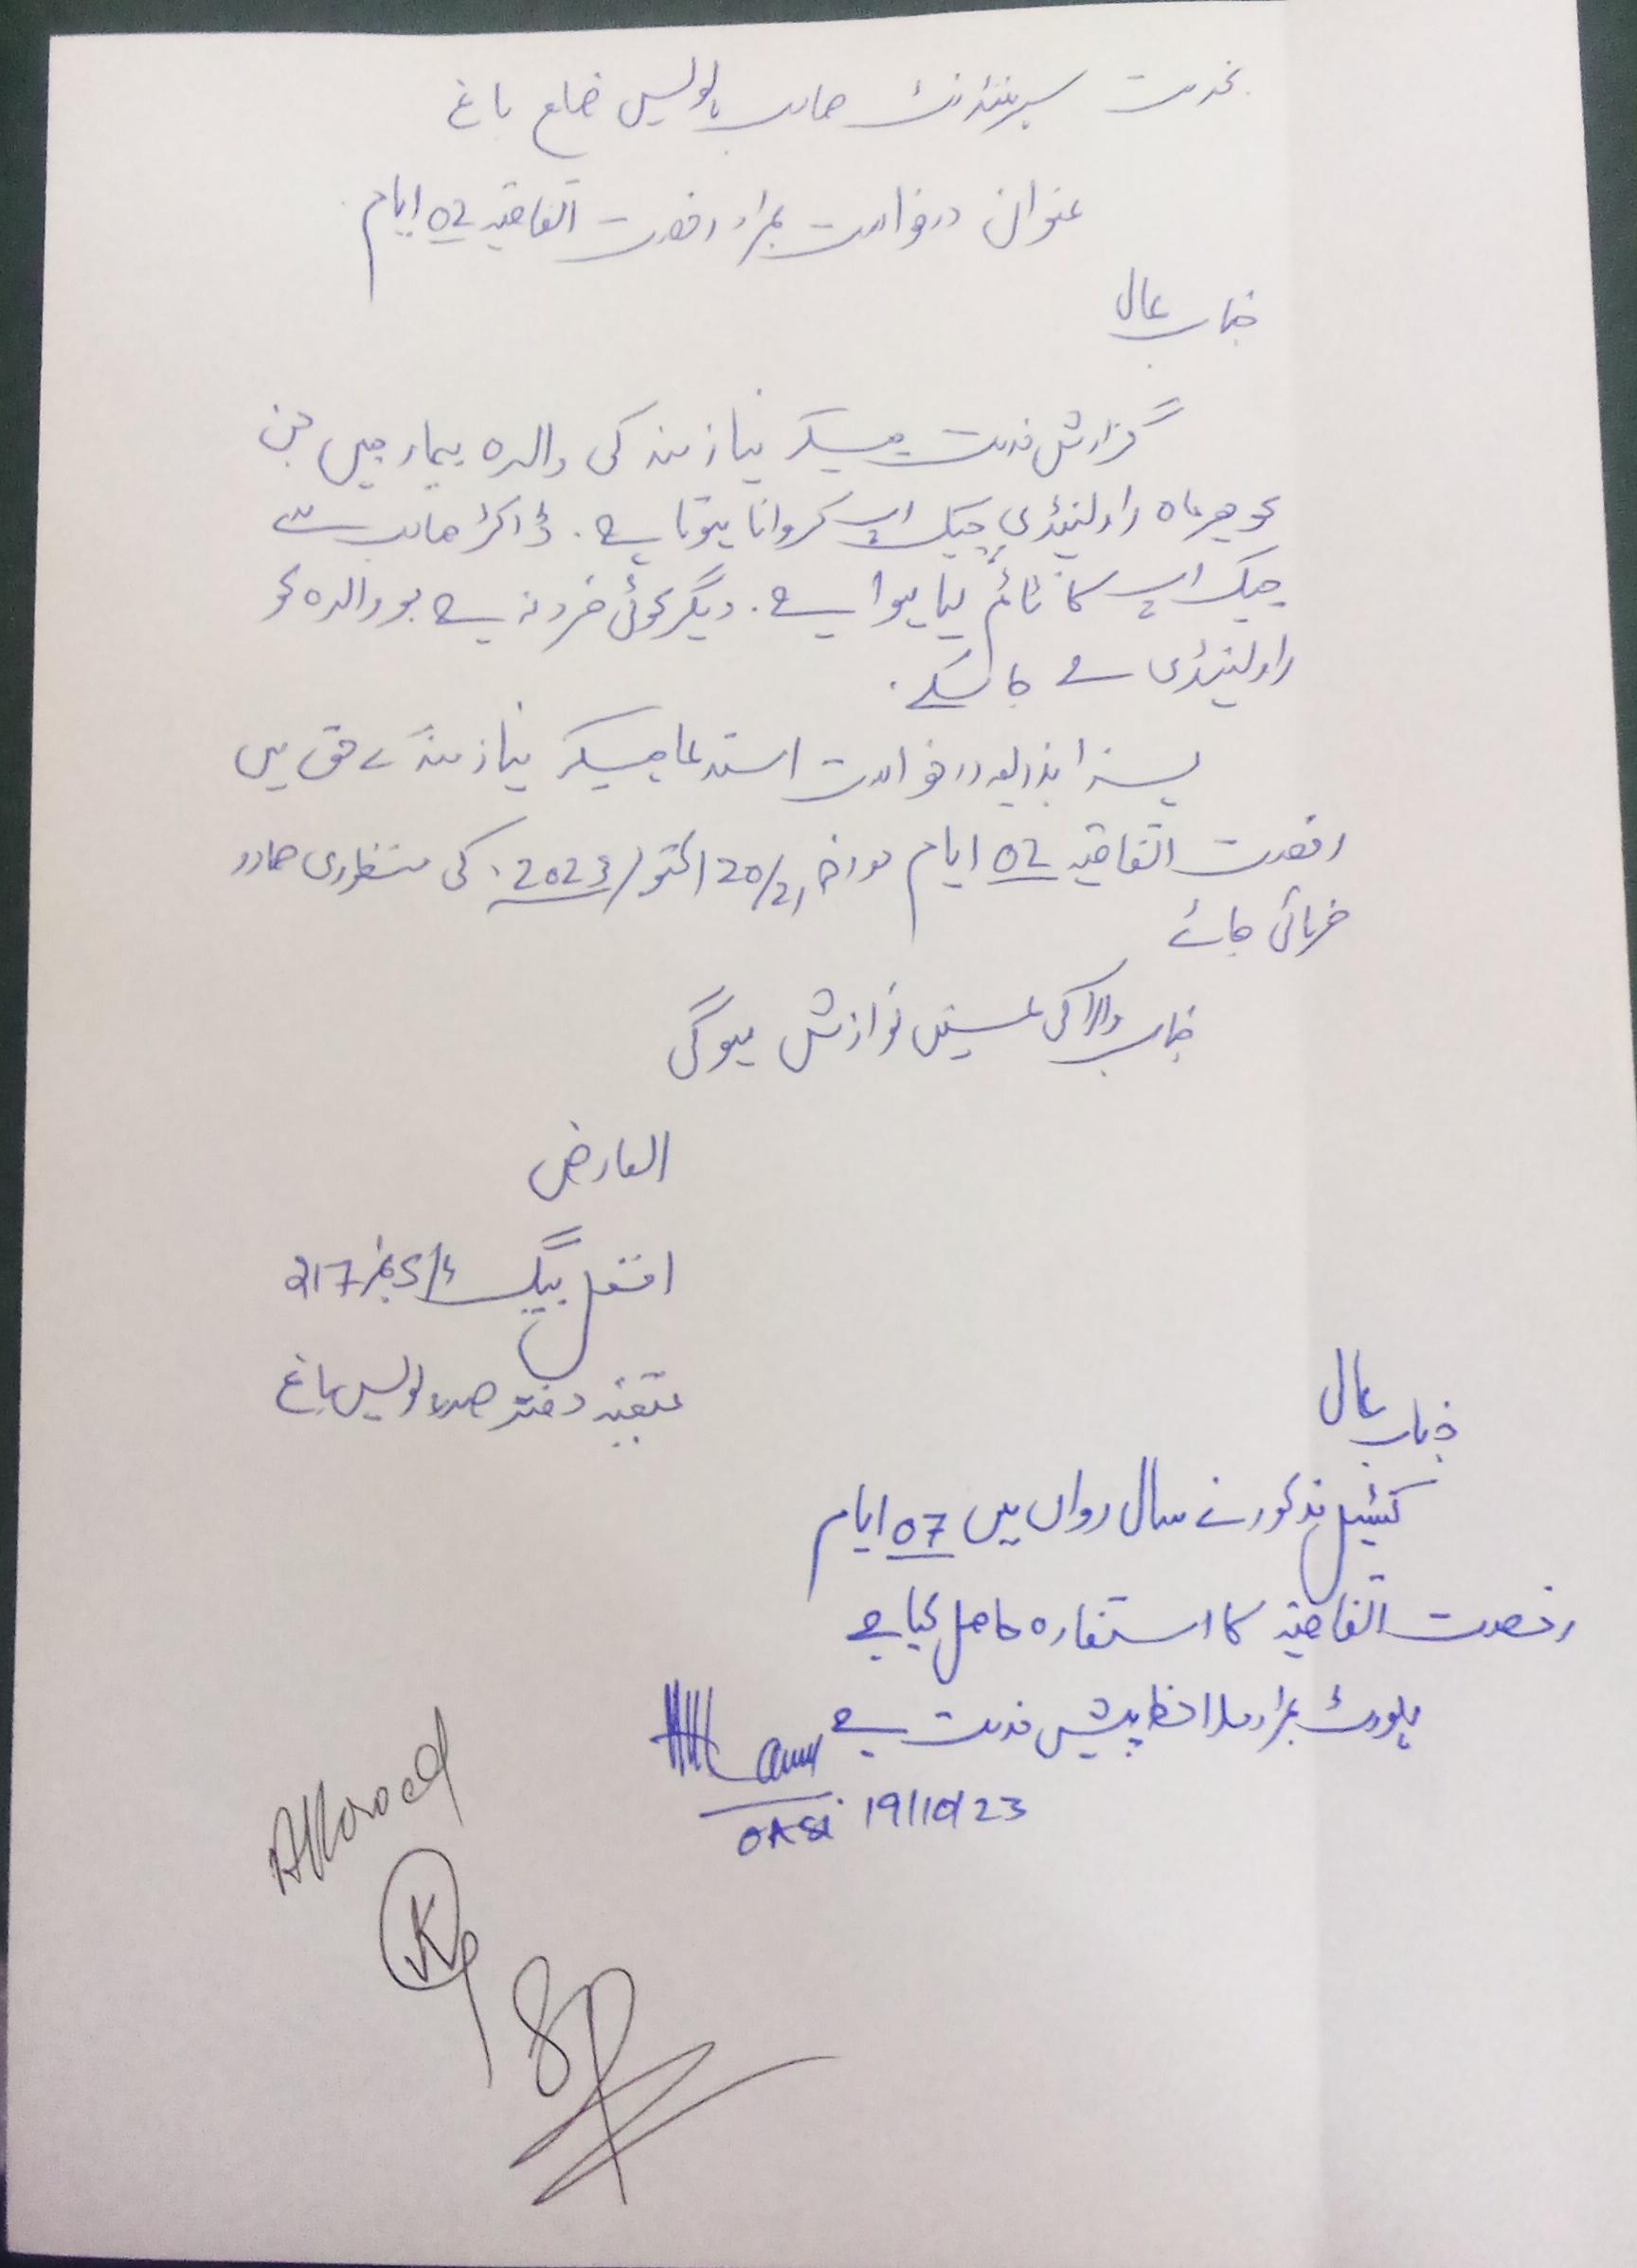 بخدمت سپرنٹنڈنٹ صاحب پولیس ضلع باغ
عنوان درخواست بمراد رخصت اتفاقیہ 02 ایام
جناب عالی
گزارش خدمت ہیکہ نیازمند کی والدہ بیمار ہیں جن
کو ہر ماہ راولپنڈی چیک اپ کروانا ہوتا ہے۔ ڈاکٹر صاحب سے
چیک اپ کا ٹائم لیا ہوا ہے۔ دیگر کوئی فرد نہ ہے جو والدہ کو
راولپنڈی لے جا سکے۔
لہذا بذریعہ درخواست استدعا ہیکہ نیازمند کے حق میں
رخصت اتفاقیہ 02 ایام مورخہ 20/21 اکتوبر 2023ء کی منظوری صادر
فرمائی جائے
جناب والا کی عین نوازش ہوگی
العارض
افضل بیگ نمبر 217
متعینہ دفتر صدر پولیس باغ
جناب عالی
کنسٹیبل مذکور نے سال رواں میں 07 ایام
رخصت اتفاقیہ کا استفادہ حاصل کیا ہے
رپورٹ بمراد ملاحظہ پیش خدمت ہے
OASI 19/10/23
Allowed
SP